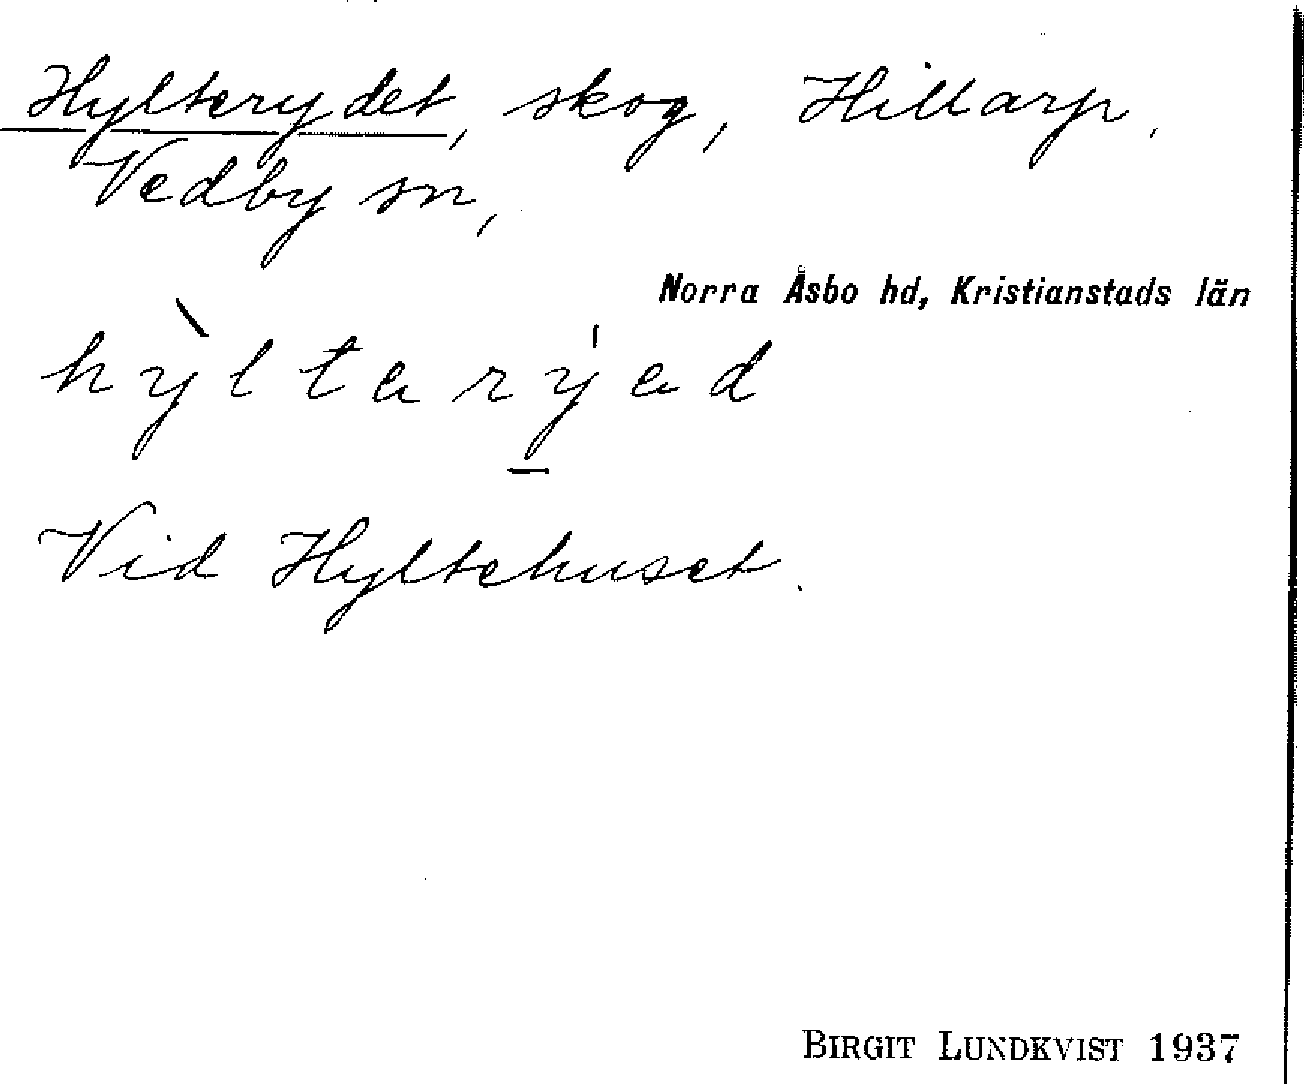 Hylterydet, skog, Hillarp.
Vedby sn,
Norra Åsbo hd, Kristianstads län
hỳltarýad
Vid Hyltehuset.
BIRGIT LUNDKVIST 1937